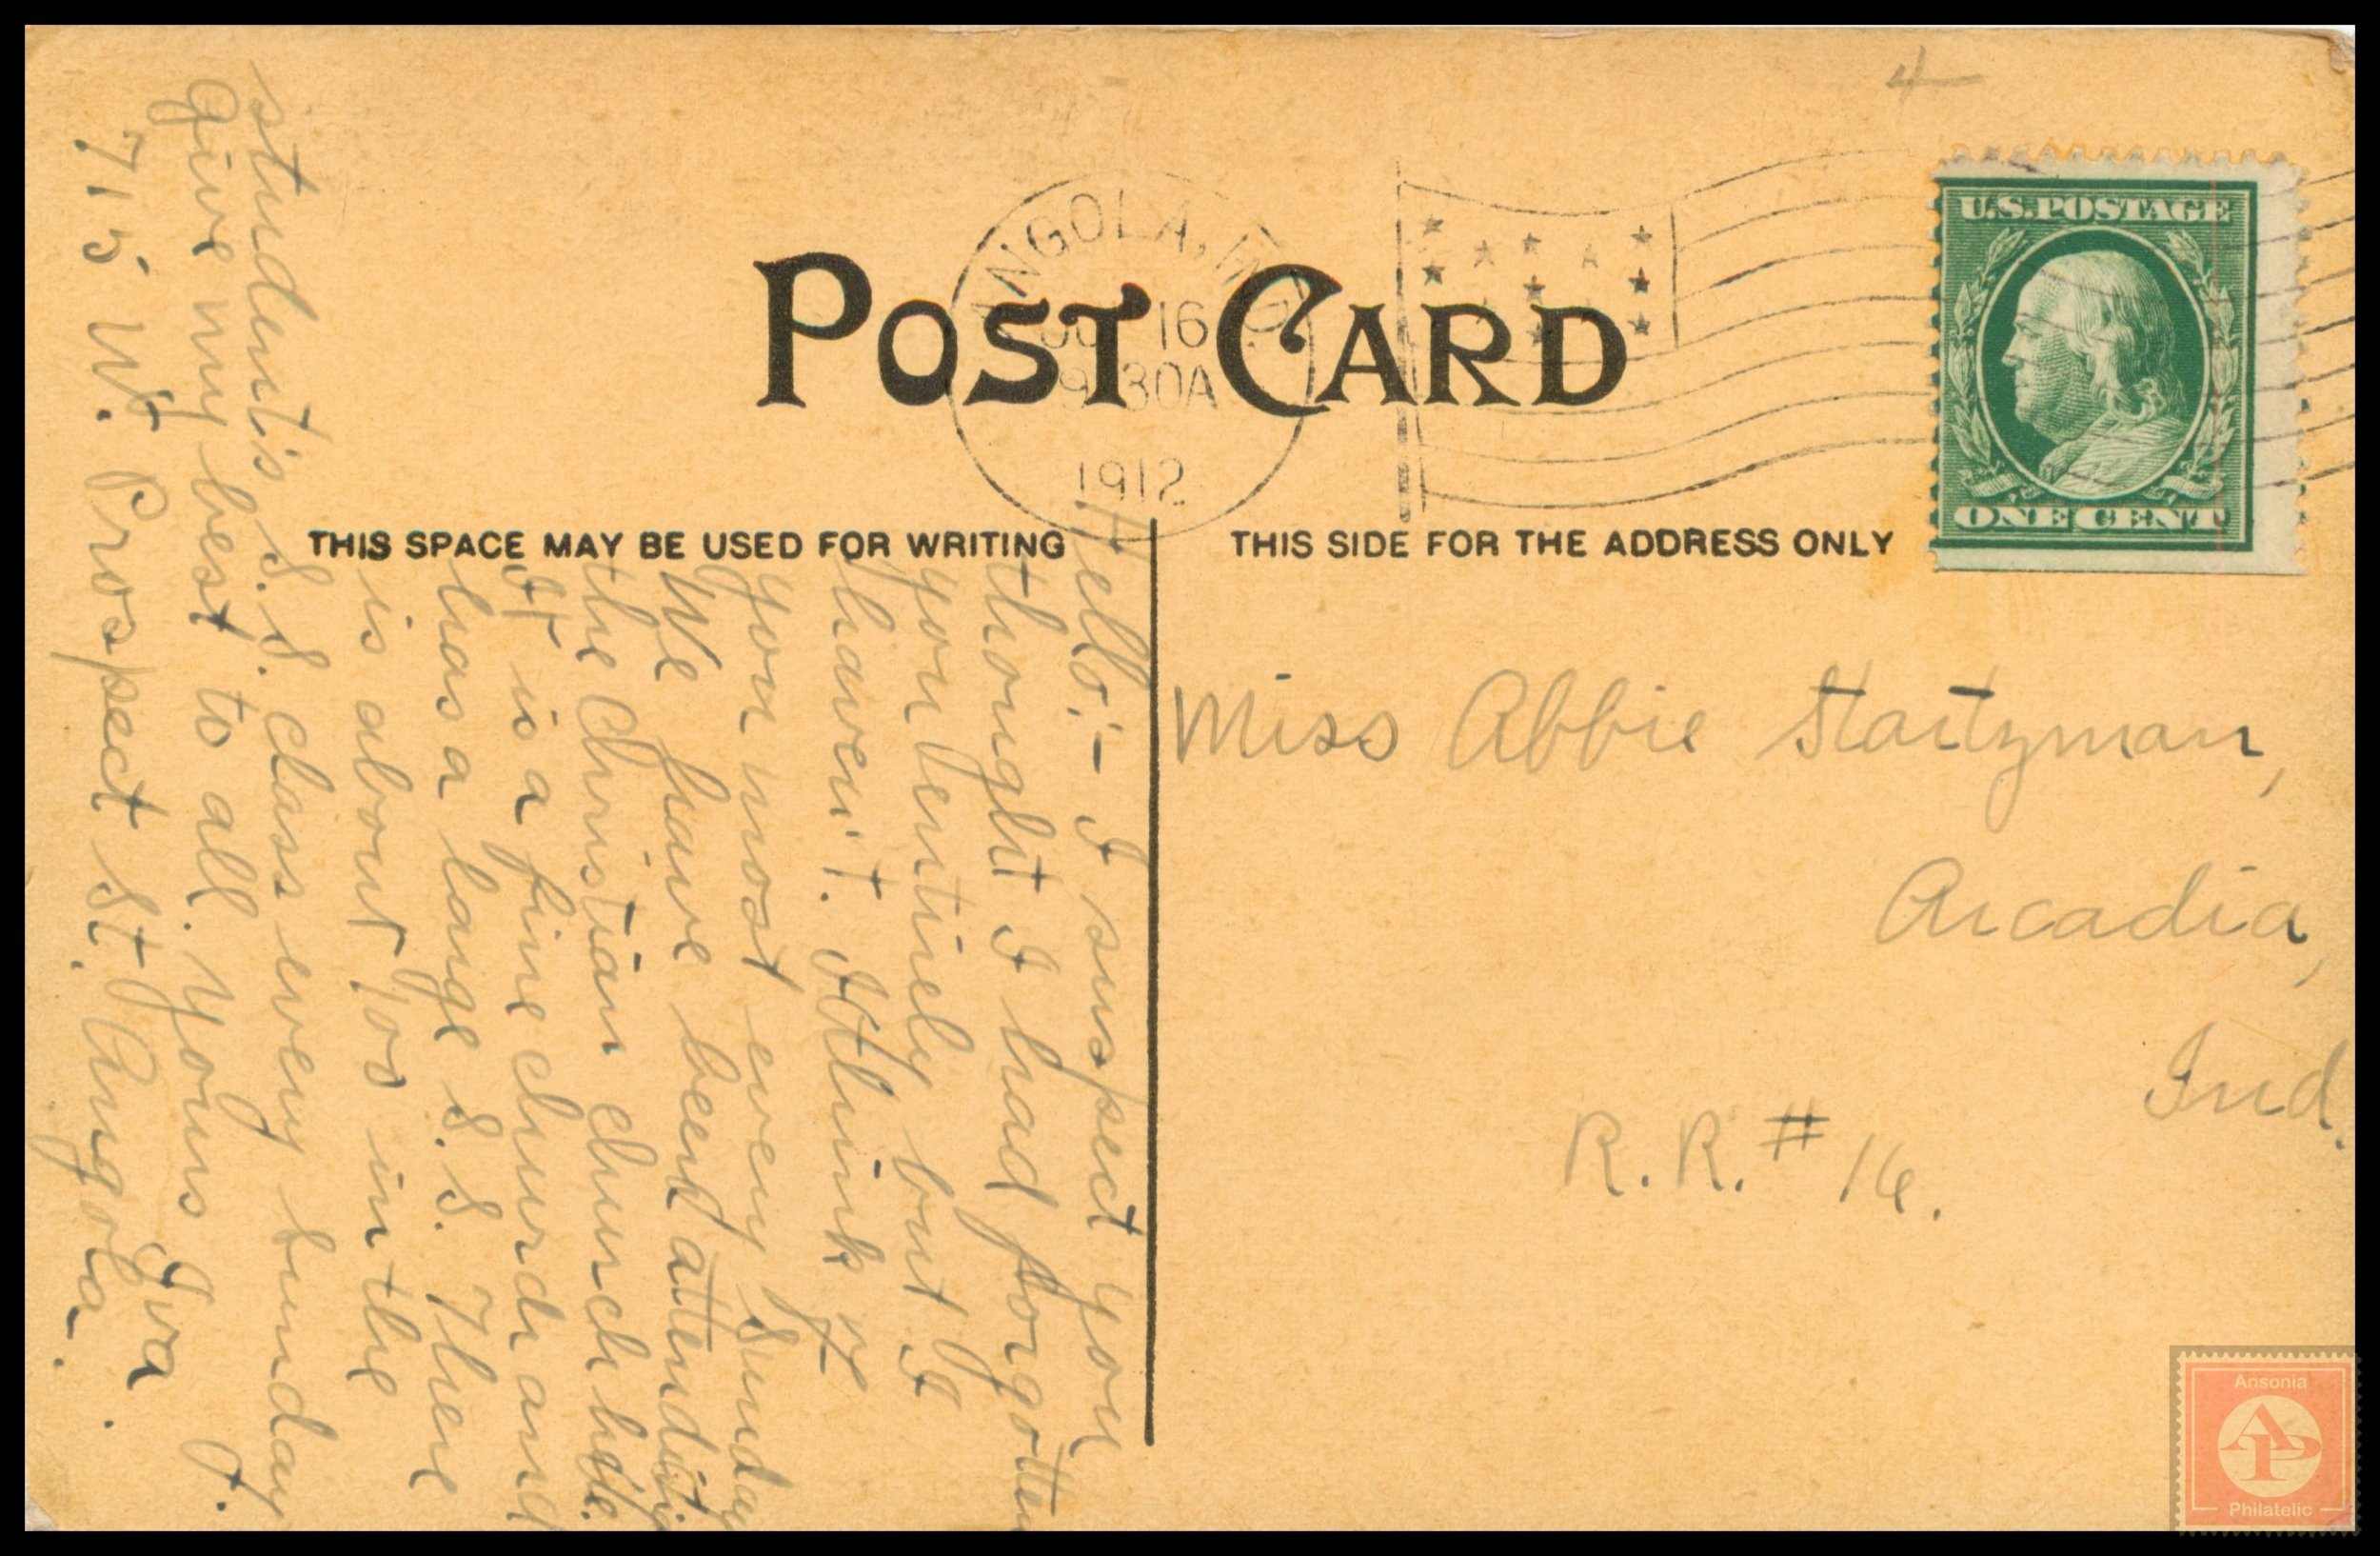 4
ANGOLA, IND
16
9 30A
1912
U.S. POSTAGE
ONE CENT
POST CARD
THIS SPACE MAY BE USED FOR WRITING
THIS SIDE FOR THE ADDRESS ONLY
Hello:- I suspect you
thought I had forgotten
you entirely but I
haven't. I think of
you most every Sunday
We have been attending
the Christian church here.
It is a fine church and
has a large S. S. There
is about 700 in the
student's S.S. class every Sunday
Give my best to all. Yours Iva J.
715 W. Prospect St. Angola.
Miss Abbie Startzman,
Arcadia,
Ind.
R. R. # 16.
Ansonia
AP
Philatelic